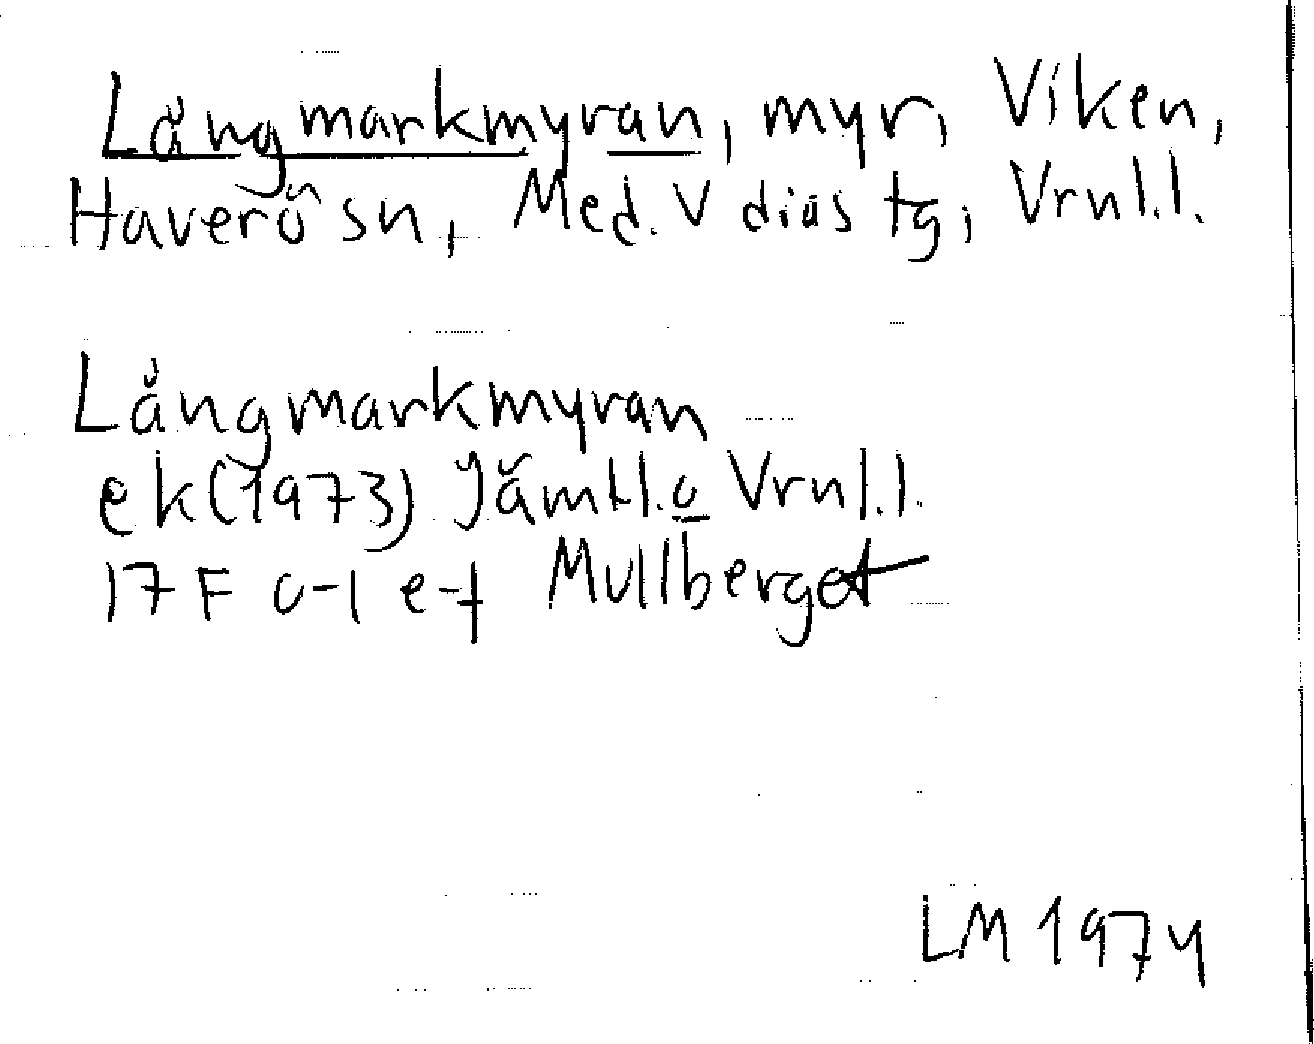 Långmarkmyran, myr, Viken,
Haverö sn, Med. V dias tg, Vrnl.l.
Långmarkmyran
ek(1973) Jämtl.o Vrnl.l.
17 F c-l e-f Mullberget
LM 1974